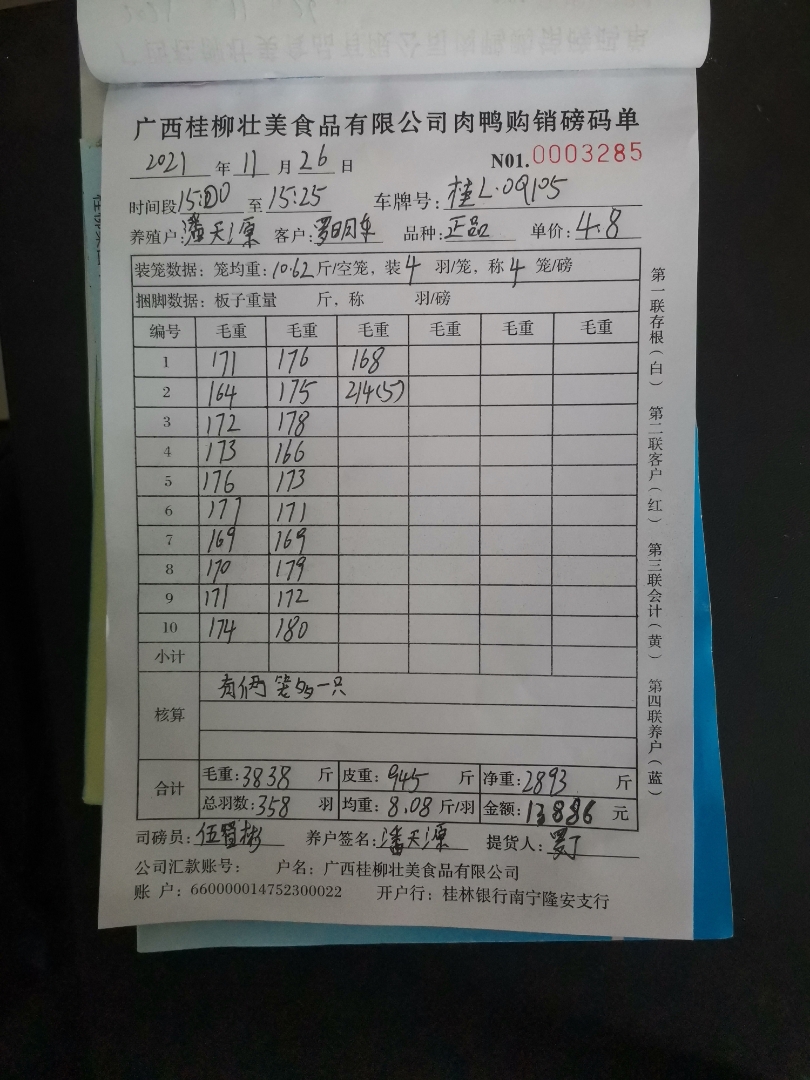 广西桂柳壮美食品有限公司肉鸭购销磅码单
2021 年 11 月 26 日 N01.0003285
时间段 15:00 至 15:25 车牌号: 桂L·0Q105
养殖户: 潘天源 客户: 罗明车 品种: 正品 单价: 4.8
装笼数据: 笼均重: 10.62 斤/空笼, 装 4 羽/笼, 称 4 笼/磅
捆脚数据: 板子重量 斤, 称 羽/磅
编号 毛重 毛重 毛重 毛重 毛重 毛重
1 171 176 168
2 164 175 214(5)
3 172 178
4 173 166
5 176 173
6 177 171
7 169 169
8 170 179
9 171 172
10 174 180
小计
核算 有俩笼多一只
合计 毛重: 3838 斤 皮重: 945 斤 净重: 2893 斤
总羽数: 358 羽 均重: 8.08 斤/羽 金额: 13886 元
司磅员: 伍 彬 养户签名: 潘天源 提货人:
公司汇款账号: 户名: 广西桂柳壮美食品有限公司
账 户: 660000014752300022 开户行: 桂林银行南宁隆安支行
第一联存根(白) 第二联客户(红) 第三联会计(黄) 第四联养户(蓝)